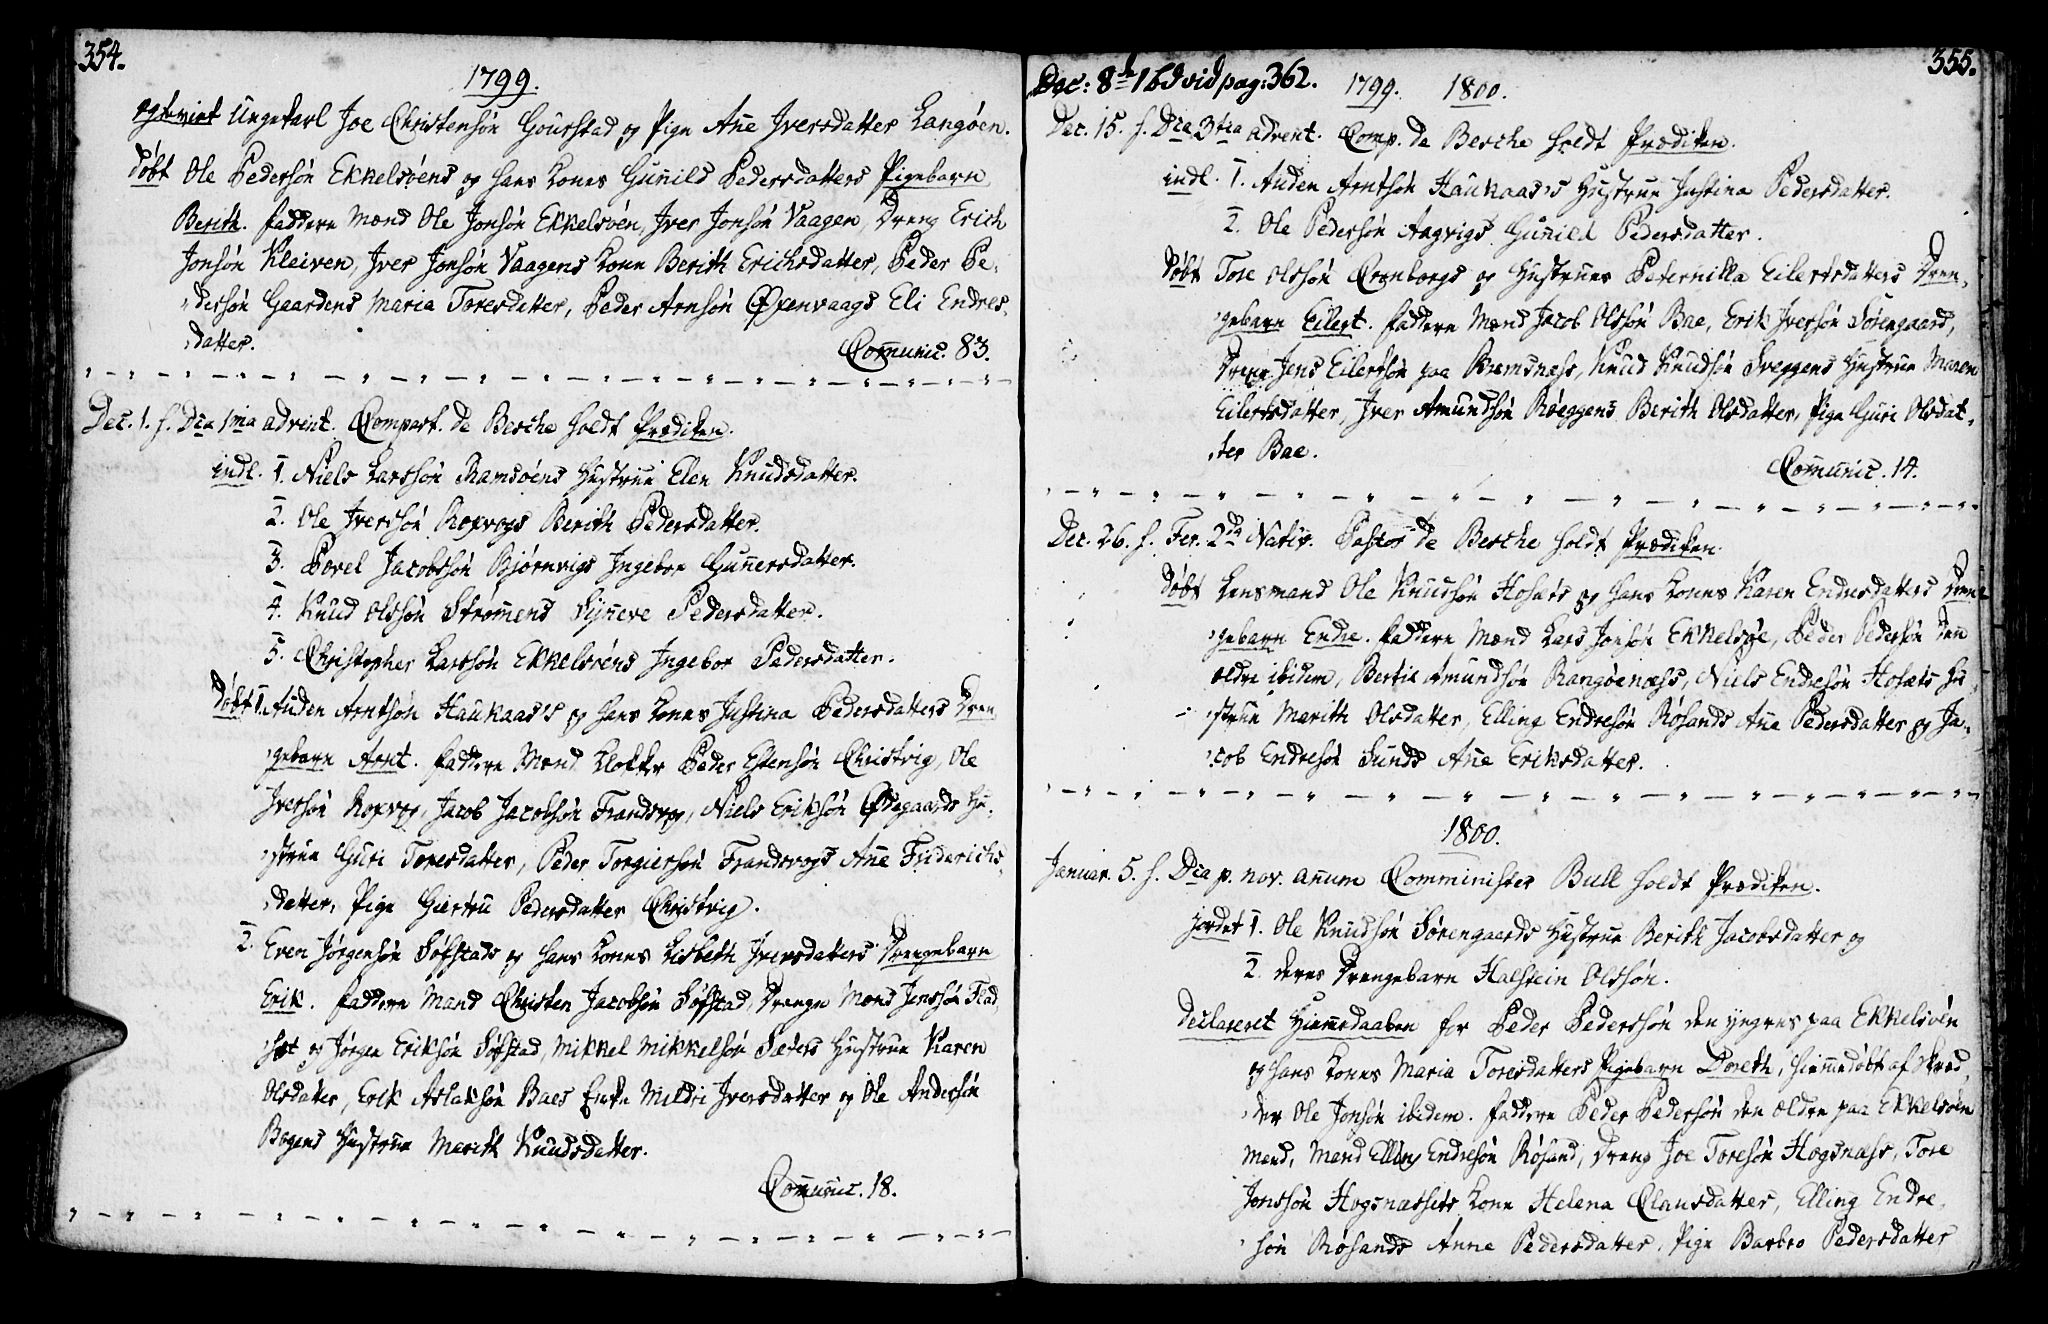 354.
1799.
Ungekarl Joe Christensön Gourstad og Pige Añe Iversdatter Langöen.
döbt Ole Pedersön Ekkelsöens og hans Kones Guñild Pedersdatters Pigebarn
Berith. Faddere Mænd Ole Jonsön Ekkelsöen, Iver Jonsön Vaagen, Dreng Erich
Jonsön Kleiven, Iver Jonsön Vaagens Kone Berith Erichsdatter, Peder Pe-
dersön Gaardens Maria Toresdatter, Peder Arnsön Øxenvaags Eli Endres-
datter.
Com̃unic. 83.
Dec. 1. h. Dca 1ma advent. Compast. de Besche holdt Prædiken.
indl. 1. Niels Larssön Ramsöens Hustrue Elen Knudsdatter.
2. Ole Iversön Roxvogs Berith Pedersdatter.
3. Povel Jacobsön Bjørnvigs Ingebor Guñersdatter.
4. Knud Olssön Ström̃ens Syñeve Pedersdatter.
5. Christopher Larssön Ekkelsöens Ingebor Pedersdatter.
Döbt 1. Auden Arntsön Haukaas's og hans Kones Justina Pedersdatters Dren-
gebarn Arnt. Faddere Mænd Klokker Peder Estensön Christvig, Ole
Iversön Roxvog, Jacob Jacobsön Frandsvog, Niels Eriksön Ødegaards Hu-
strue Guri Toresdatter, Peder Torgiersön Frandsvogs Añe Friderichs-
datter, Pige Giertru Pedersdatter Christvig.
2. Even Jörgensön Söfstads og hans Kones Lisbeth Iversdatters Drengebarn
Erik. Faddere Mænd Christen Jacobsön Söfstad, Drenge Mons Jenssön Flad-
sæt og Jörgen Eriksön Söfstad, Mikkel Mikkelsön Sæters Hustrue Karen
Olsdatter, Erik Aslaksön Baes Enke Mildri Iversdatter og Ole Andersön
Bøgens Hustrue Marith Knudsdatter.
Com̃unic. 18.
355.
Dec: 8d 16d vid pag: 362. 1799. 1800.
Dec. 15. h. Dca 3tia advent. Comp. de Besche holdt Prædiken.
indl. 1. Auden Arntsön Haukaas's Hustrue Justina Pedersdatter.
2. Ole Pedersön Aagvigs Guñild Pedersdatter.
Döbt Tore Olssön Ørnborgs og Hustrues Peternilla Eilertsdatters Dren-
gebarn Eilert. Faddere Mænd Jacob Olssön Bae, Erik Iversön Sörengaard,
Dreng Jens Eilertsön paa Bremsnæss, Knud Knudsön Sveggens Hustrue Maren
Eilertsdatter, Iver Amundsön Röeggens Berith Olsdatter, Pige Guri Olsdat-
ter Bae.
Com̃unic. 14.
Dec. 26. h. Fer. 2da Nativ. Pastor de Besche holdt Prædiken.
Döbt Lensmand Ole Knudsön Hosæts og hans Kones Karen Endresdatters Dren-
gebarn Endre. Faddere Mænd Lars Jonsön Ekkelsöe, Peder Pedersön den
ældre ibidem, Bertil Amundsön Rangöenæss, Niels Endresön Hosæts Hu-
strue Marith Olsdatter, Elling Endresön Rösands Añe Pedersdatter og Ja-
cob Endresön Sunds Añe Eriksdatter.
1800.
Januar. 5. h. Dca p. nov. añum Comminister Bull holdt Prædiken.
jordet 1. Ole Knudsön Sörengaards Hustrue Berith Jacobsdatter og
2. deres Drengebarn Halstein Olssön.
Declareret Hiem̃edaaben for Peder Pederssön den yngres paa Ekkelsöen
og hans Kones Maria Toresdatters Pigebarn Doreth, hiem̃edöbt af Skræd-
der Ole Jonsön ibidem. Faddere Peder Pedersön den ældre paa Ekkelsöen
mænd, Mænd Elling Endresön Rösand, Dreng Joe Toresön Hogsnæss, Tore
Jonssön Hogsnæssets Kone Helena Clausdatter, Elling Endre-
sön Rösands Anne Pedersdatter, Pige Barbro Pedersdatter